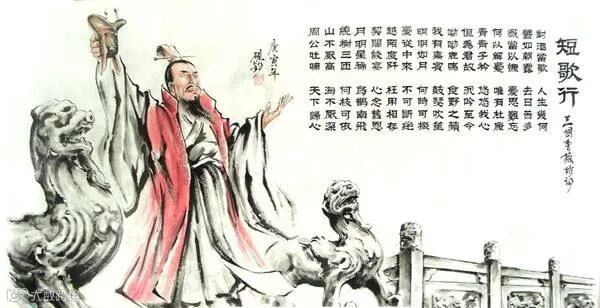 短歌行
對酒當歌 人生幾何
譬如朝露 去日苦多
慨當以慷 憂思難忘
何以解憂 唯有杜康
青青子衿 悠悠我心
但為君故 沉吟至今
呦呦鹿鳴 食野之蘋
我有嘉賓 鼓瑟吹笙
明明如月 何時可掇
憂從中來 不可斷絕
越陌度阡 枉用相存
契闊談宴 心念舊恩
月明星稀 烏鵲南飛
繞樹三匝 何枝可依
山不厭高 海不厭深
周公吐哺 天下歸心
庚寅年
大数跨境